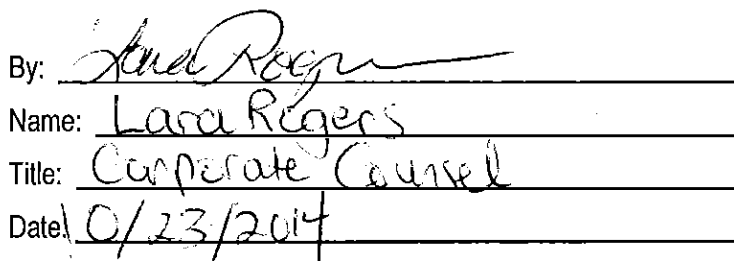 By: Lara Rogers
Name: Lara Rogers
Title: Corporate Counsel
Date: 10/23/2014